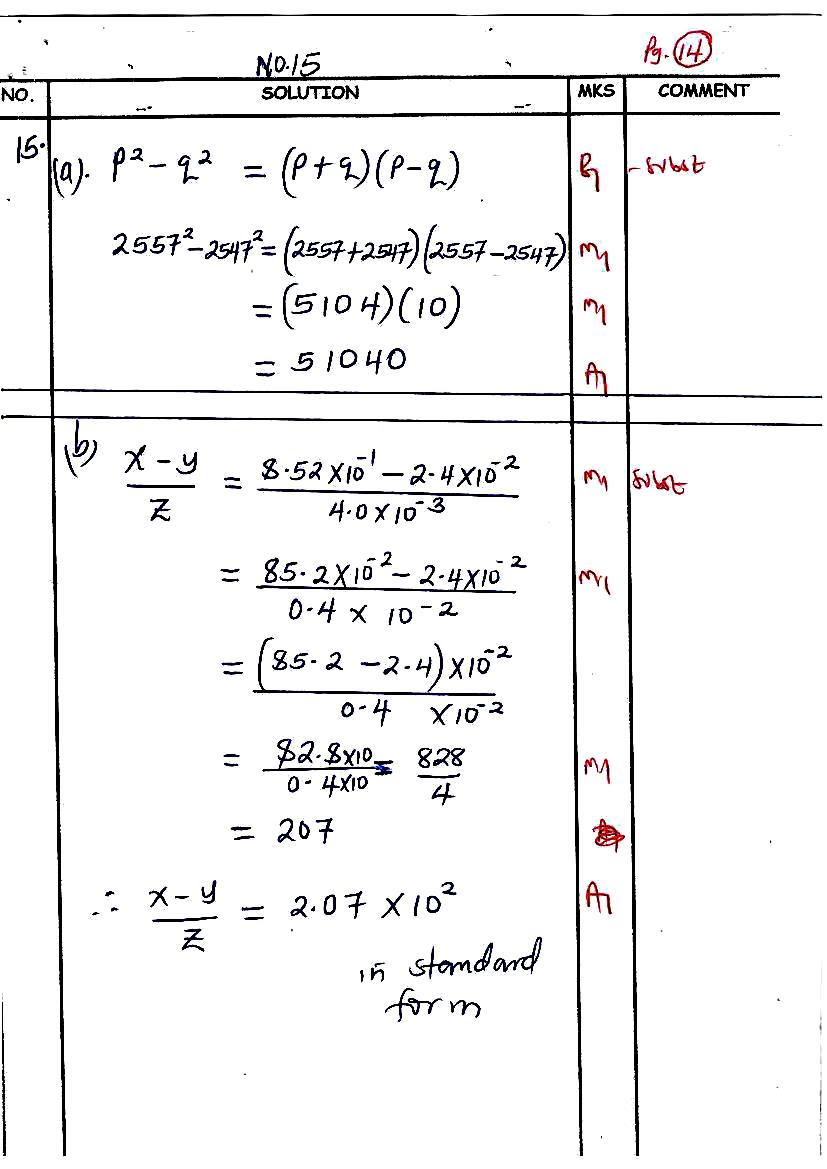 NO.15 Pg. 14
NO. SOLUTION MKS COMMENT
15. (a). p² - q² = (p+q)(p-q) B1 - subst
2557² - 2547² = (2557+2547)(2557-2547) M1
= (5104)(10) M1
= 51040 A1
(b) x - y / z = 8.52 x 10⁻¹ - 2.4 x 10⁻² / 4.0 x 10⁻³ M1 subst
= 85.2 x 10⁻² - 2.4 x 10⁻² / 0.4 x 10⁻² M1
= (85.2 - 2.4) x 10⁻² / 0.4 x 10⁻²
= 82.8 x 10 / 0.4 x 10 = 828 / 4 M1
= 207
∴ x - y / z = 2.07 x 10² A1
in standard
form